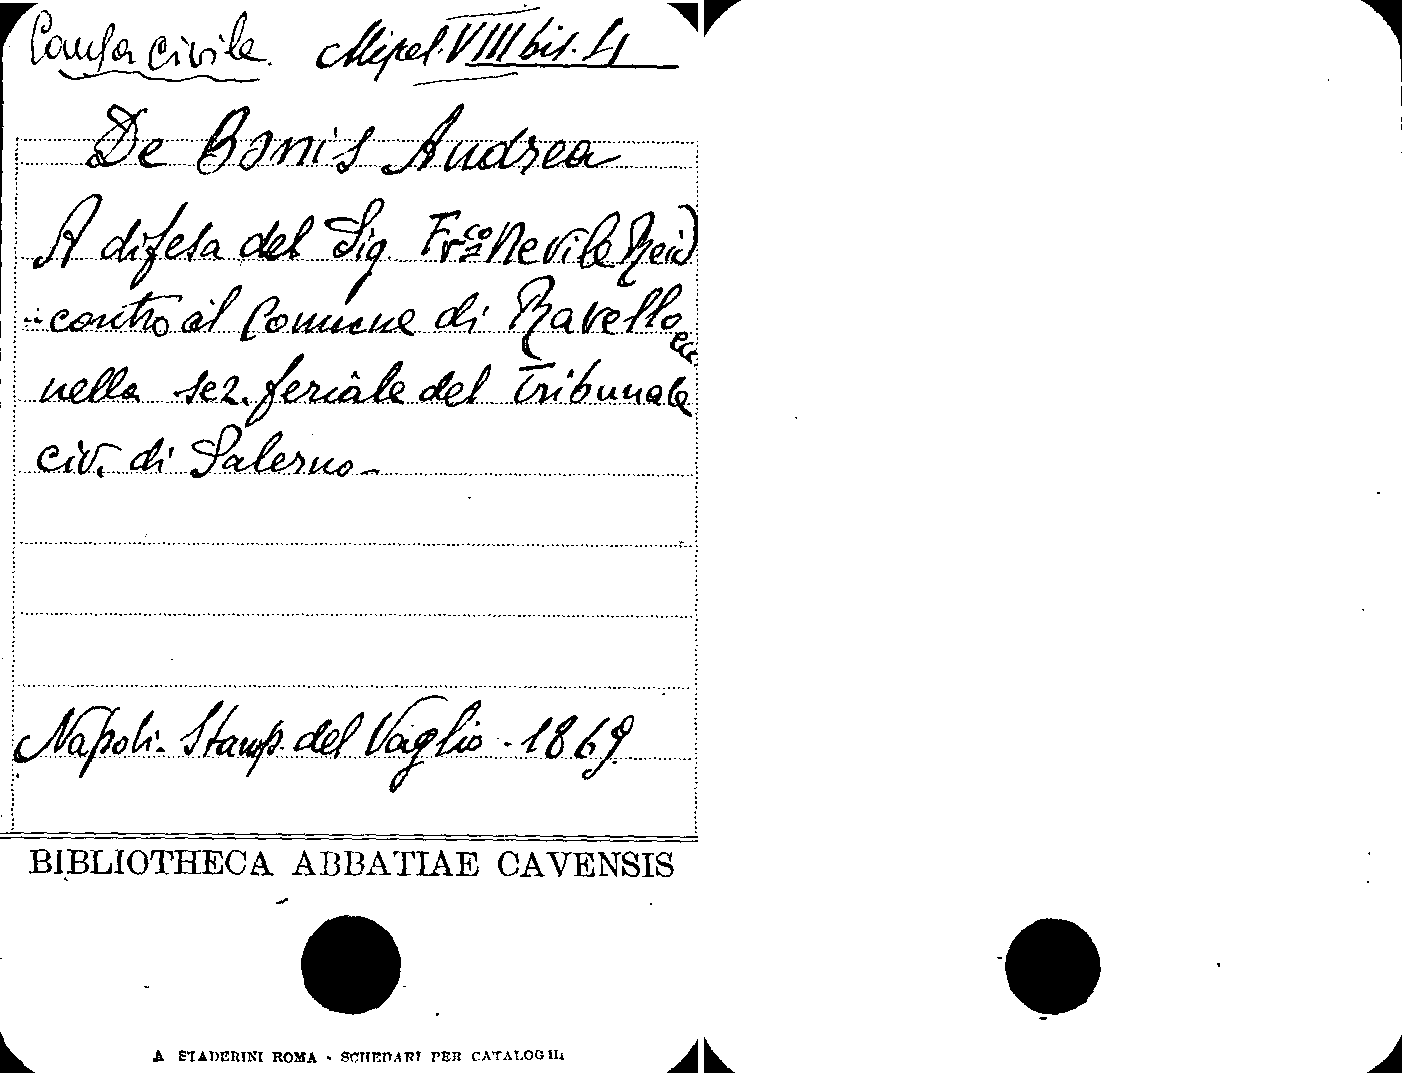 Causa civile. Miscel. VIII bis. 4
De Bonis Andrea
A difesa del Sig. Fr.co Nevile Reid
contro il Comune di Ravello
ecc.
nella sez. feriale del Tribunale
civ. di Salerno -
Napoli. Stamp. del Vaglio - 1869
BIBLIOTHECA ABBATIAE CAVENSIS
A STADERINI ROMA - SCHEDARI PER CATALOGHI